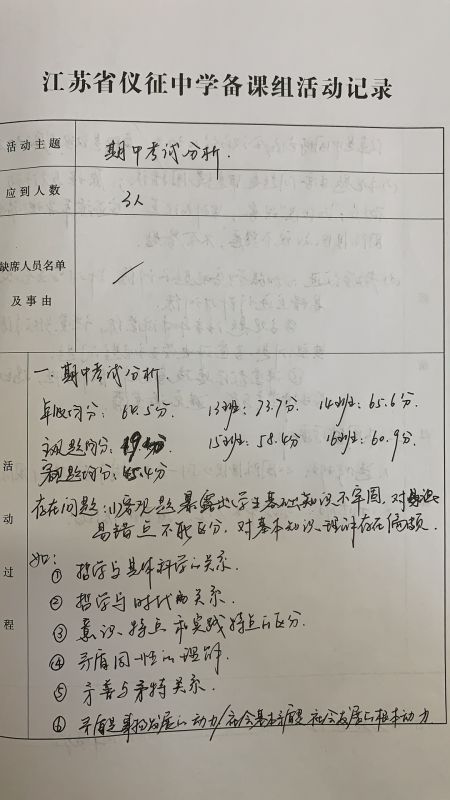 江苏省仪征中学备课组活动记录
活动主题 期中考试分析.
应到人数 3人
缺席人员名单
及事由
活动过程
一.期中考试分析
年级均分: 64.5分. 13班: 73.7分. 14班: 65.6分
主观题均分: 15班: 58.4分 16班: 60.9分.
客观题均分: 45.4分
存在问题: (1)客观题暴露出学生基础知识不牢固, 对易混
易错点不能区分, 对基本知识、理解存在偏颇.
如:
① 哲学与具体科学的关系.
② 哲学与时代的关系.
③ 意识特点和实践特点的区分.
④ 矛盾同一性的理解.
⑤ 矛普与矛特关系.
⑥ 矛盾是事物发展的动力/社会基本矛盾是社会发展的根本动力